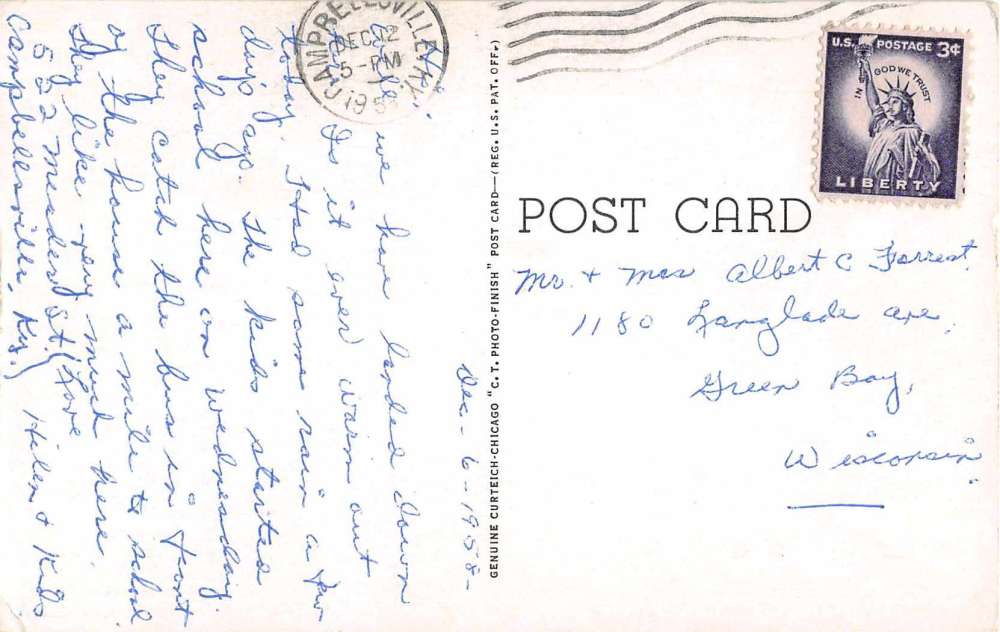 CAMPBELLSVILLE, KY.
DEC 12
5-PM
195
U.S. POSTAGE 3¢
IN GOD WE TRUST
LIBERTY
POST CARD
GENUINE CURTEICH-CHICAGO "C. T. PHOTO-FINISH" POST CARD—(REG. U. S. PAT. OFF.)
Dec-6-1958-
Hi,
Well we have landed down
here. Is it ever warm out
today. Had some rain a few
days ago. The kids started
school here on Wednesday.
They catch the bus in front
of the house a mile to school
They like very much here.
552 Meader St. Love
Campbellsville, Ky. Helen & Kids
Mr. + Mrs Albert C Forrest.
1180 Langlade ave,
Green Bay,
Wisconsin